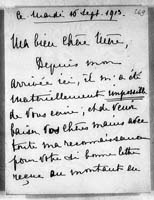 Ce Mardi 16 Sept. 1913.
Ma bien chère Mère,
Depuis mon
arrivée ici, il m'a été
matériellement impossible
de vous écrire; et de venir
baiser vos chères mains avec
toute ma reconnaissance
pour votre si bonne lettre
reçue au moment du